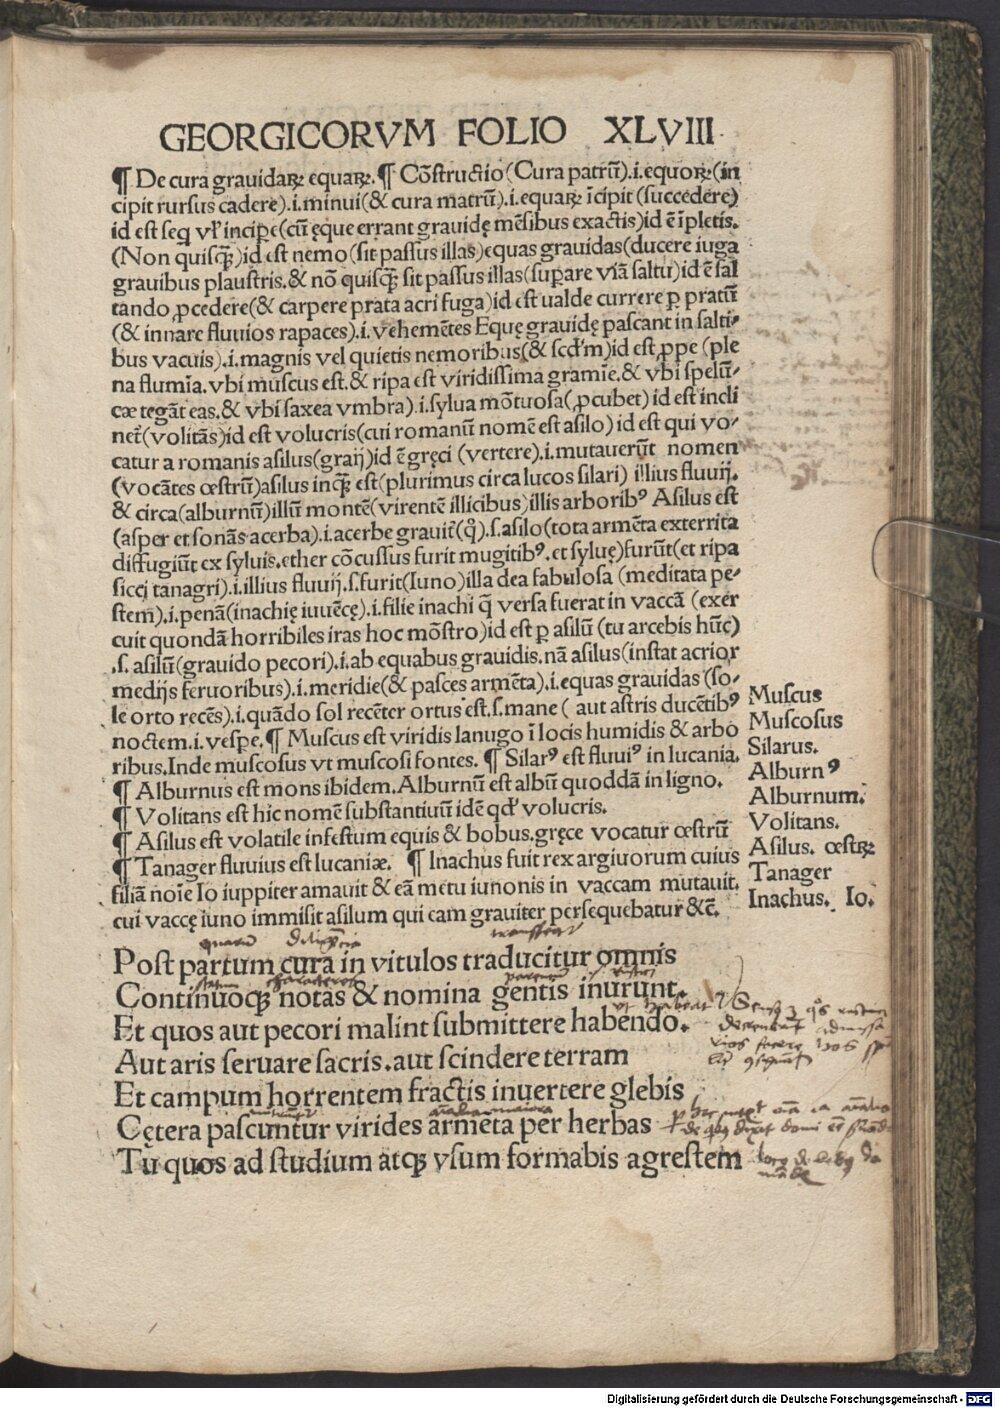 GEORGICORVM FOLIO XLVIII
¶ De cura grauidaꝝ equaꝝ. ¶ Cõstructio (Cura patrũ).i.equoꝝ (in
cipit rursus cadere).i.minui (& cura matrũ).i.equaꝝ ĩcipit (succedere)
id est seq̃ vl' incipe (cũ ęque errant grauidę mẽsibus exactis) id ẽ ĩpletis.
(Non quisꝙ̃) id est nemo (sit passus illas) equas grauidas (ducere iuga
grauibus plaustris. & nõ quisꝙ̃ sit passus illas (suꝑare viã saltu) id ẽ sal
tando ꝓcedere (& carpere prata acri fuga) id est ualde currere ꝑ pratũ
(& innare fluuios rapaces).i.vehemẽtes Equę grauidę pascant in salti-
bus vacuis).i.magnis vel quietis nemoribus (& scd'm) id est ꝓpe (ple
na flumĩa. vbi muscus est. & ripa est viridissima gramĩe. & vbi spelũ-
cæ tegãt eas. & vbi saxea vmbra).i.sylua mõtuosa (ꝓcubet) id est incli
net' (volitãs) id est volucris (cui romanũ nomẽ est asilo) id est qui vo-
catur a romanis asilus (graij) id ẽ gręci (vertere).i.mutauerũt nomen
(vocãtes œstrũ) asilus inꝙ̃ est (plurimus circa lucos silari) illius fluuij.
& circa (alburnũ) illũ montẽ (virentẽ illicibus) illis arboribꝰ Asilus est
(asper et sonãs acerba).i.acerbe grauit' (q̊).s.asilo (tota armẽta exterrita
diffugiũt ex syluis. ether cõcussus furit mugitibꝰ. et syluę) furũt (et ripa
sicci tanagri).i.illius fluuij.s.furit (Iuno) illa dea fabulosa (meditata pe-
stem).i.penã (inachię iuuẽcę).i.filie inachi q̃ versa fuerat in vaccã (exer
cuit quondã horribiles iras hoc mõstro) id est ꝑ asilũ (tu arcebis hũc)
.s. asilũ (grauido pecori).i.ab equabus grauidis. nã asilus (instat acrior
medijs feruoribus).i.meridie (& pasces armẽta).i.equas grauidas (so-
le orto recẽs).i.quãdo sol recẽter ortus est.s.mane ( aut astris ducẽtibꝰ
noctem.i.vespe. ¶ Muscus est viridis lanugo ĩ locis humidis & arbo
ribus. Inde muscosus vt muscosi fontes. ¶ Silarꝰ est fluuiꝰ in lucania.
¶ Alburnus est mons ibidem. Alburnũ est albũ quoddã in ligno.
¶ Volitans est hic nomẽ substantiuũ idẽ qd' volucris.
¶ Asilus est volatile infestum equis & bobus. gręce vocatur œstrũ
¶ Tanager fluuius est lucaniæ. ¶ Inachus fuit rex argiuorum cuius
filiã noĩe Io iuppiter amauit & eã metu iunonis in vaccam mutauit.
cui vaccę iuno immisit asilum qui eam grauiter persequebatur &c̃.
Muscus
Muscosus
Silarus.
Alburnꝰ
Alburnum.
Volitans.
Asilus. œstꝝ
Tanager
Inachus. Io.
Post partum cura in vitulos traducitur omnis
Continuoqꝫ notas & nomina gentis inurunt.
Et quos aut pecori malint submittere habendo.
Aut aris seruare sacris. aut scindere terram
Et campum horrentem fractis inuertere glebis
Cętera pascuntur virides armẽta per herbas
Tu quos ad studium atqꝫ vsum formabis agrestem
Digitalisierung gefördert durch die Deutsche Forschungsgemeinschaft - DFG